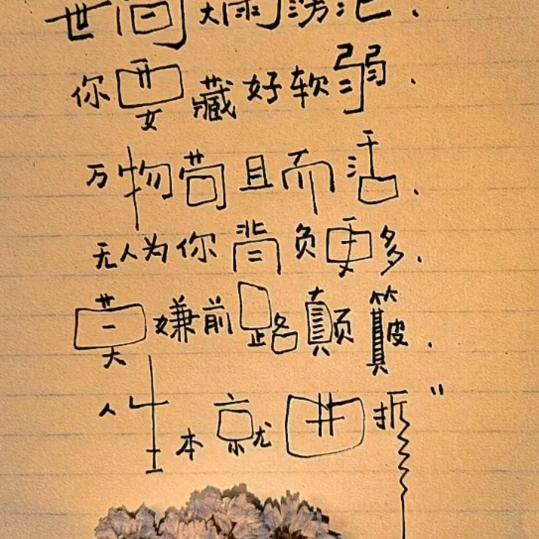 世间大雨滂沱.
你要藏好软弱.
万物苟且而活.
无人为你背负更多.
莫嫌前路颠簸.
人生本就曲折"